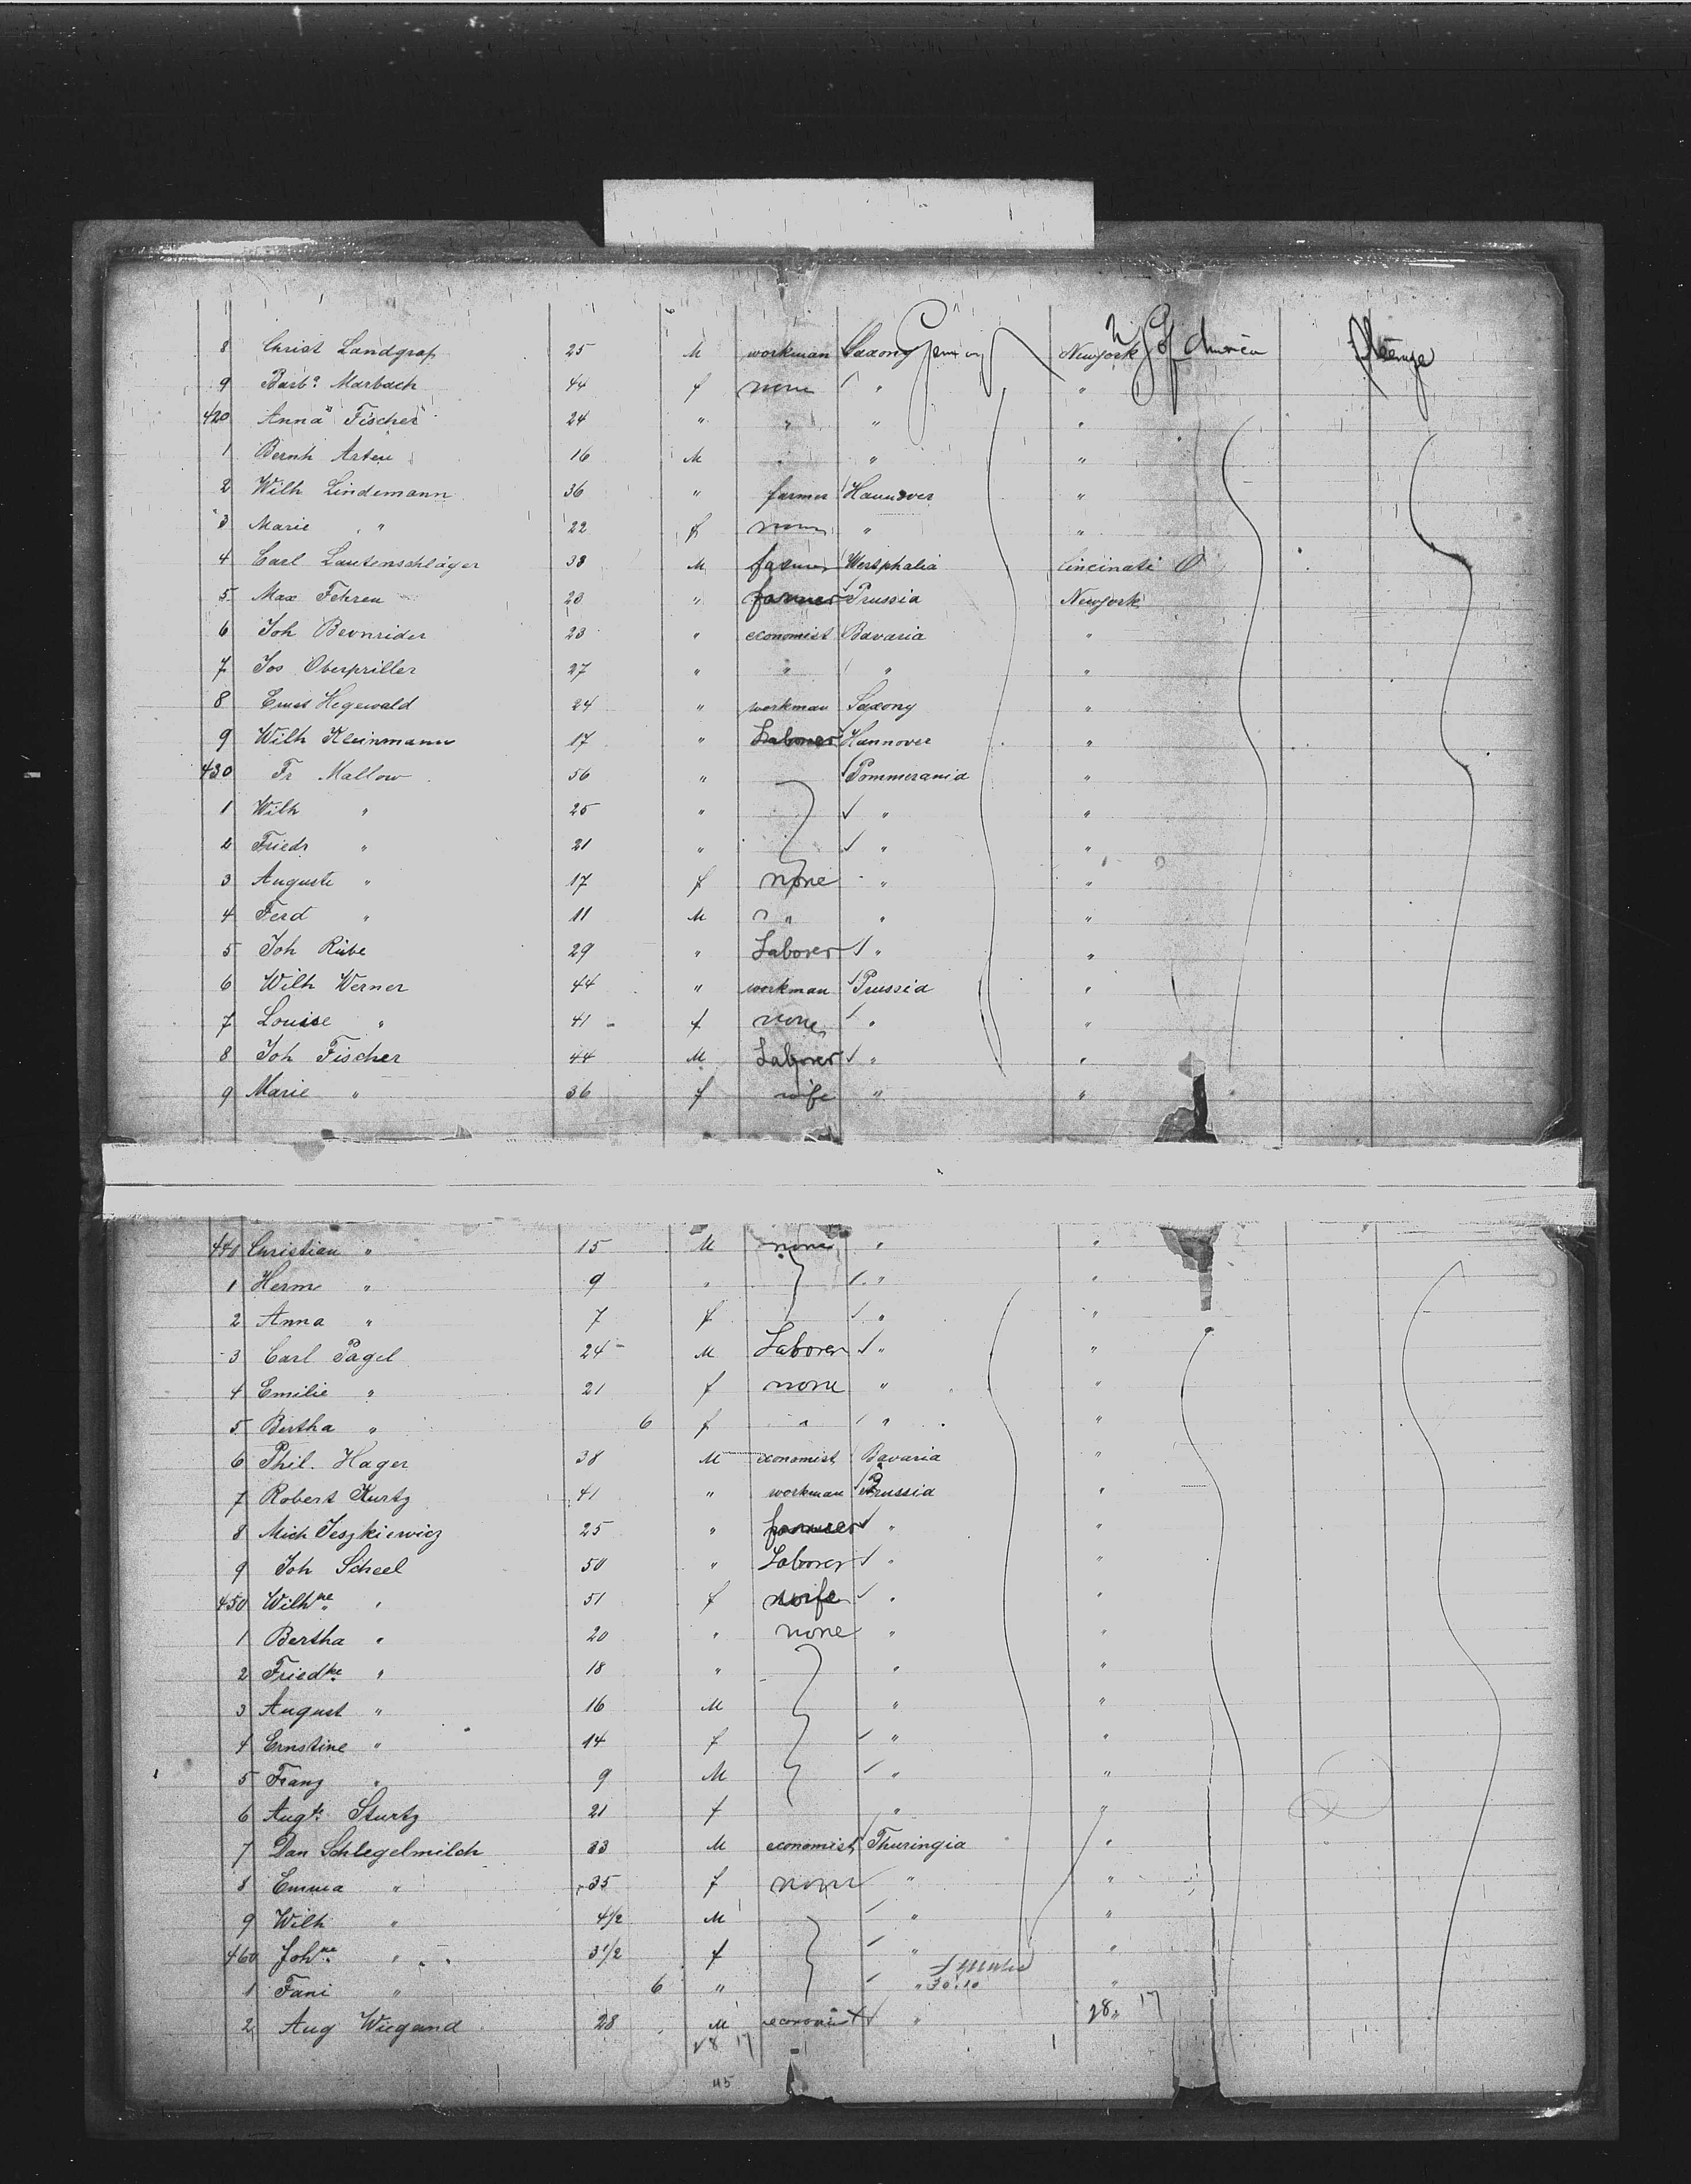 8 Christ Landgraf 25 M workman Saxony Germany Newyork U S of America Steerage
9 Barba Marbach 44 f none " "
420 Anna Fischer 24 " " " "
1 Bernh Arten 16 M " " "
2 Wilh Lindemann 36 " farmer Hannover "
3 Marie " 22 f none " "
4 Carl Lautenschläger 38 M farmer Westphalia Cincinati O
5 Max Fehren 23 " farmer Prussia Newyork
6 Joh 23 " economist Bavaria "
7 Jos Oberpriller 27 " " " "
8 Ernst Hegewald 24 " workman Saxony "
9 Wilh Kleinmann 17 " Laborer Hannover "
430 Fr Mallow 56 " Pommerania "
1 Wilh " 25 " " "
2 Friedr " 21 " " "
3 Auguste " 17 f none " "
4 Ferd " 11 M " " "
5 Joh Rübe 29 " Laborer " "
6 Wilh Werner 44 " workman Prussia "
7 Louise " 41 f none " "
8 Joh Fischer 44 M Laborer " "
9 Marie " 36 f wife " "
440 Christian " 15 M none " "
1 Herm " 9 " " "
2 Anna " 7 f " "
3 Carl Pagel 24 M Laborer " "
4 Emilie " 21 f none " "
5 Bertha " 6 f " " "
6 Phil. Hager 38 M economist Bavaria "
7 Robert Kurtz 41 " workman Prussia "
8 Mich Jeszkiewicz 25 " farmer " "
9 Joh Scheel 50 " Laborer " "
450 Wilhne " 51 f wife " "
1 Bertha " 20 " none " "
2 Friedke " 18 " " "
3 August " 16 M " "
4 Ernstine " 14 f " "
5 Franz " 9 M " "
6 Augte Sturtz 21 f " "
7 Dan Schlegelmilch 33 M economist Thuringia "
8 Emma " 35 f none " "
9 Wilh " 4 1/2 M " "
460 Johne " 3 1/2 f " "
1 Fani " 6 " " "
2 Aug Wiegand 28 M economist " "
28 17
28 17
115